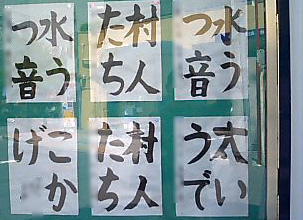 水う
つ音
村人
たち
水う
つ音
太い
うで
村人
たち
こか
げ